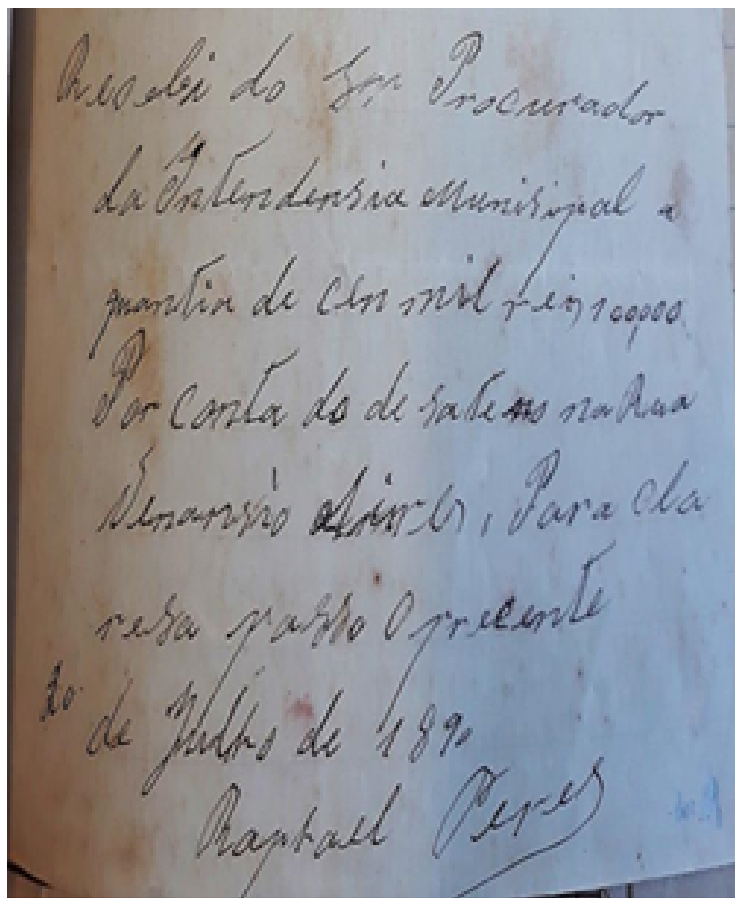 Reselei do Snr Procurador
da Intendensia Munisipal a
quantia de cen mil reis 100000
Por conta do desaterro na Rua
Venansio Aires, Para cla
resa passo O precente
20 de Julho de 1890
Raphael Peres